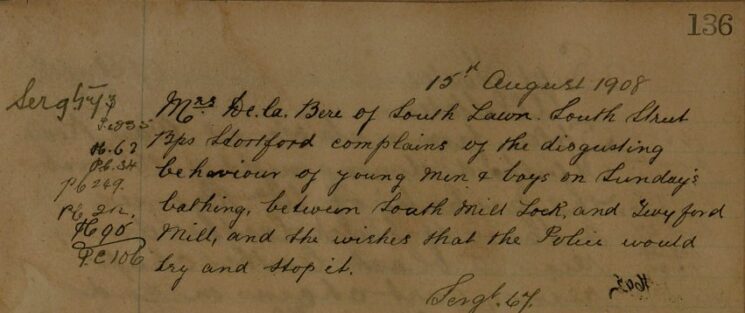 136
15th August 1908
Mrs De.la. Bere of South Lawn. South Street
Bps Stortford complains of the disgusting
behaviour of young men & boys on Sunday's
bathing, between South Mill Lock, and Twyford
Mill, and the wishes that the Police would
try and stop it.
Sergt. 67.
Sergt
H. 62
Pc. 34
Pc 249.
H 90
P.C 106